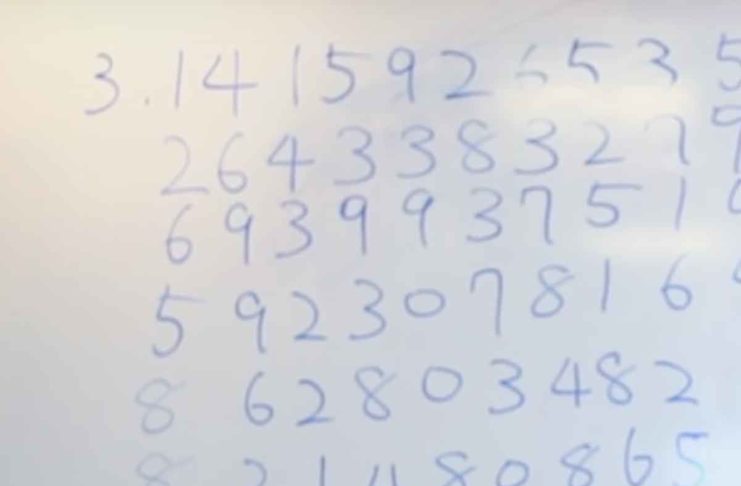 3.1415926535
2643383279
693993751
5923078164
8 62803482
821480865